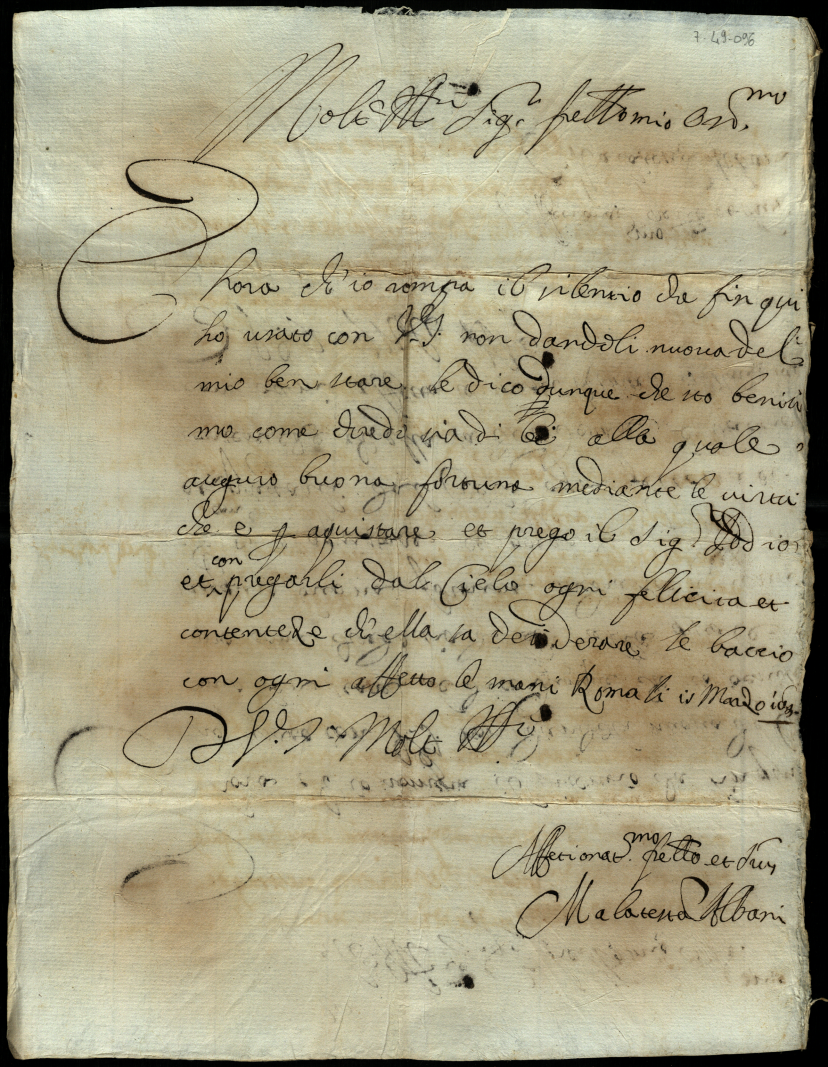 7-49-096
Molt Ill.re Sig.r fratello mio Oss.mo
E hora ch'io rompa il silentio che fin qui
ho usato con V.S. non dandoli nuova del
mio ben stare le dico dunque che sto benisi
mo come credo sia di lei alla quale
auguro buona fortuna mediante le virtu
che e p aquistare et prego il Sig.r
con
et pregarli dal Cielo ogni fellicita et
contenteze ch'ella sa desiderare le baccio
con ogni affetto le mani Roma li is Marzo
D V.S. Molt Ill.re
Affetionat.mo fratello et
Malatesta Albani